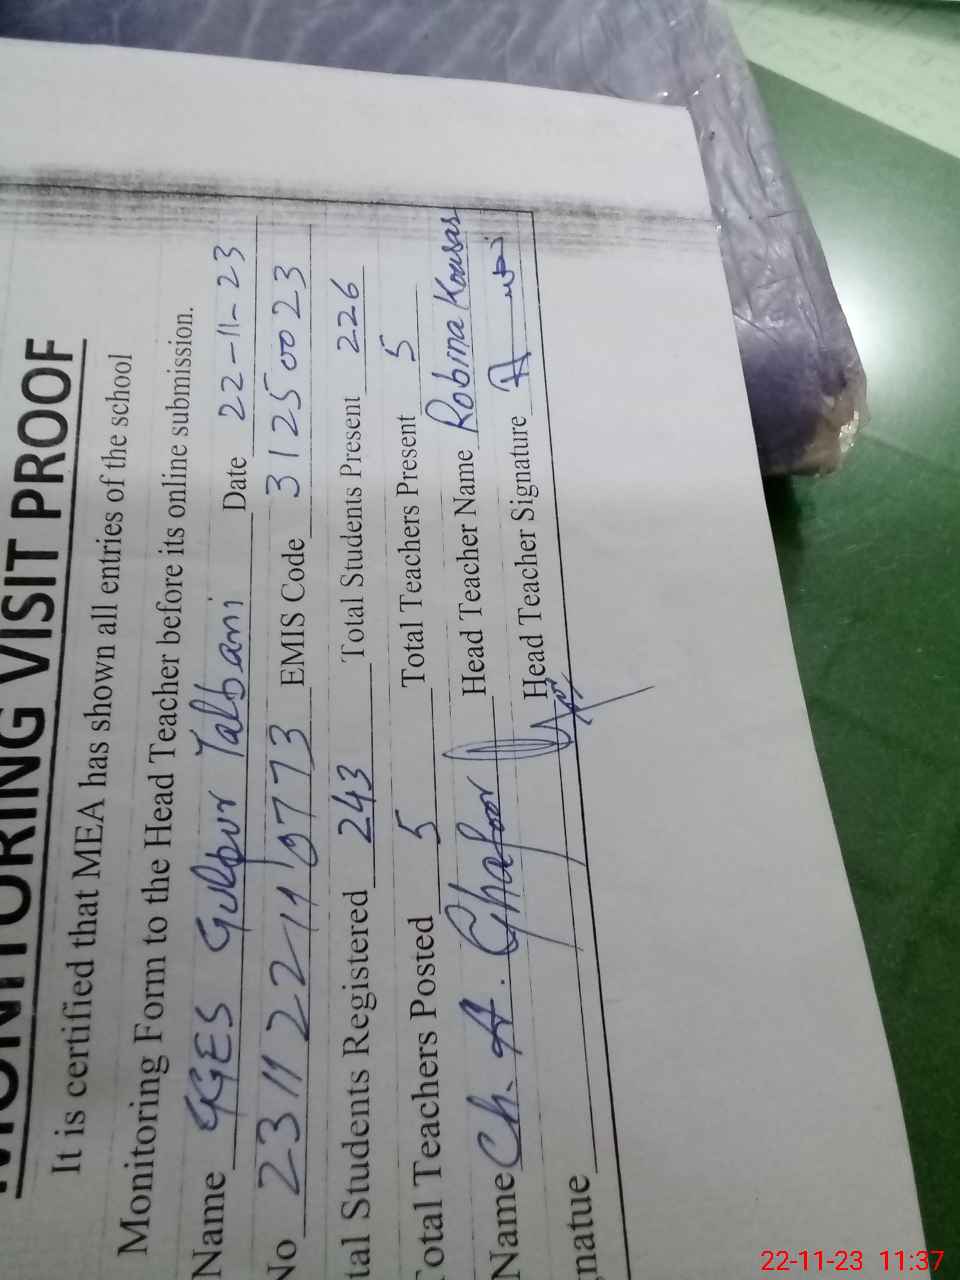 MONITORING VISIT PROOF
It is certified that MEA has shown all entries of the school
Monitoring Form to the Head Teacher before its online submission.
Name GGES Gulpur Talbani Date 22-11-23
No EMIS Code 31250023
tal Students Registered 243 Total Students Present 226
Total Teachers Posted 5 Total Teachers Present 5
Name Ch. A. Ghafoor Head Teacher Name Robina Kousar
natue Head Teacher Signature
22-11-23 11:37